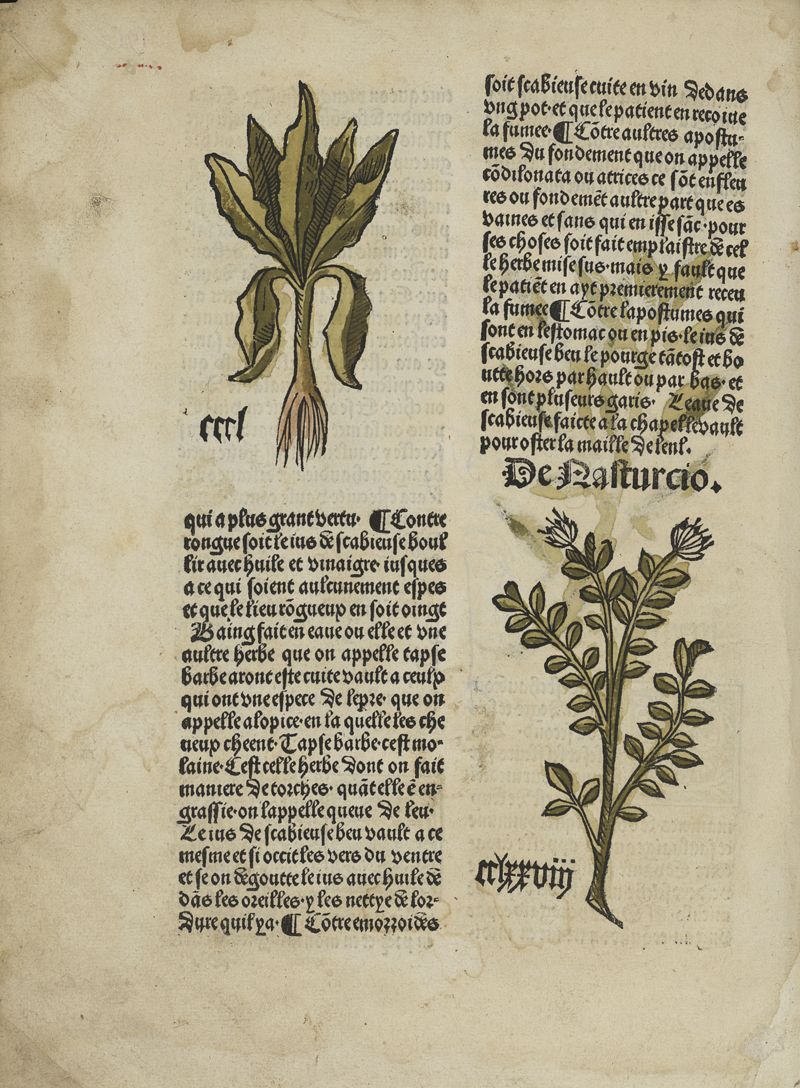 ccel
qui a plus grant vertu· ¶ Contre
rongue soit le ius de scabieuse boul
lir auec huile et vinaigre· iusques
a ce qui soient aulcunement espes
et que le lieu rõgneux en soit oingt
Baing fait en eaue ou elle et vne
aultre herbe que on appelle tapse
barbe aront este cuite vault a ceulx
qui ont vne espece de lepre· que on
appelle alopice·en la quelle les che
ueux cheent· Tapse barbe·cest mo-
laine· Cest celle herbe dont on fait
maniere de torches· quãt elle ẽ en-
graissie·on lappelle queue de leu·
Le ius de scabieuse beu vault a ce
mesme et si occit les vers du ventre
et se on degoutte le ius auec huile de
dãs les oreilles· y les nettye de lor-
dure quil ya· ¶ Cõtre emorroides
soit scabieuse cuite en vin dedans
vng pot·et que le patient en recoiue
la fumee· ¶ Cõtre aultres apostu-
mes du fondement que on appelle
cõdilonata ou atrices ce sõt enfleu
res ou fondemẽt aultre part que es
vaines et sans qui en isse sãc·pour
ses choses soit fait emplaistre de cel
le herbe mise sus·mais y fault que
le patiẽt en ayt premierement receu
la fumee ¶ Cõtre lapostumes qui
sont en lestomac ou en pis·le ius de
scabieuse beu le pourge tãtost et bo
utte hors par hault ou par bas· et
en sont pluseurs garis· Leaue de
scabieuse faicte a la chapelle vault
pour oster la maille de leul·
De Nasturcio.
cclxxviij